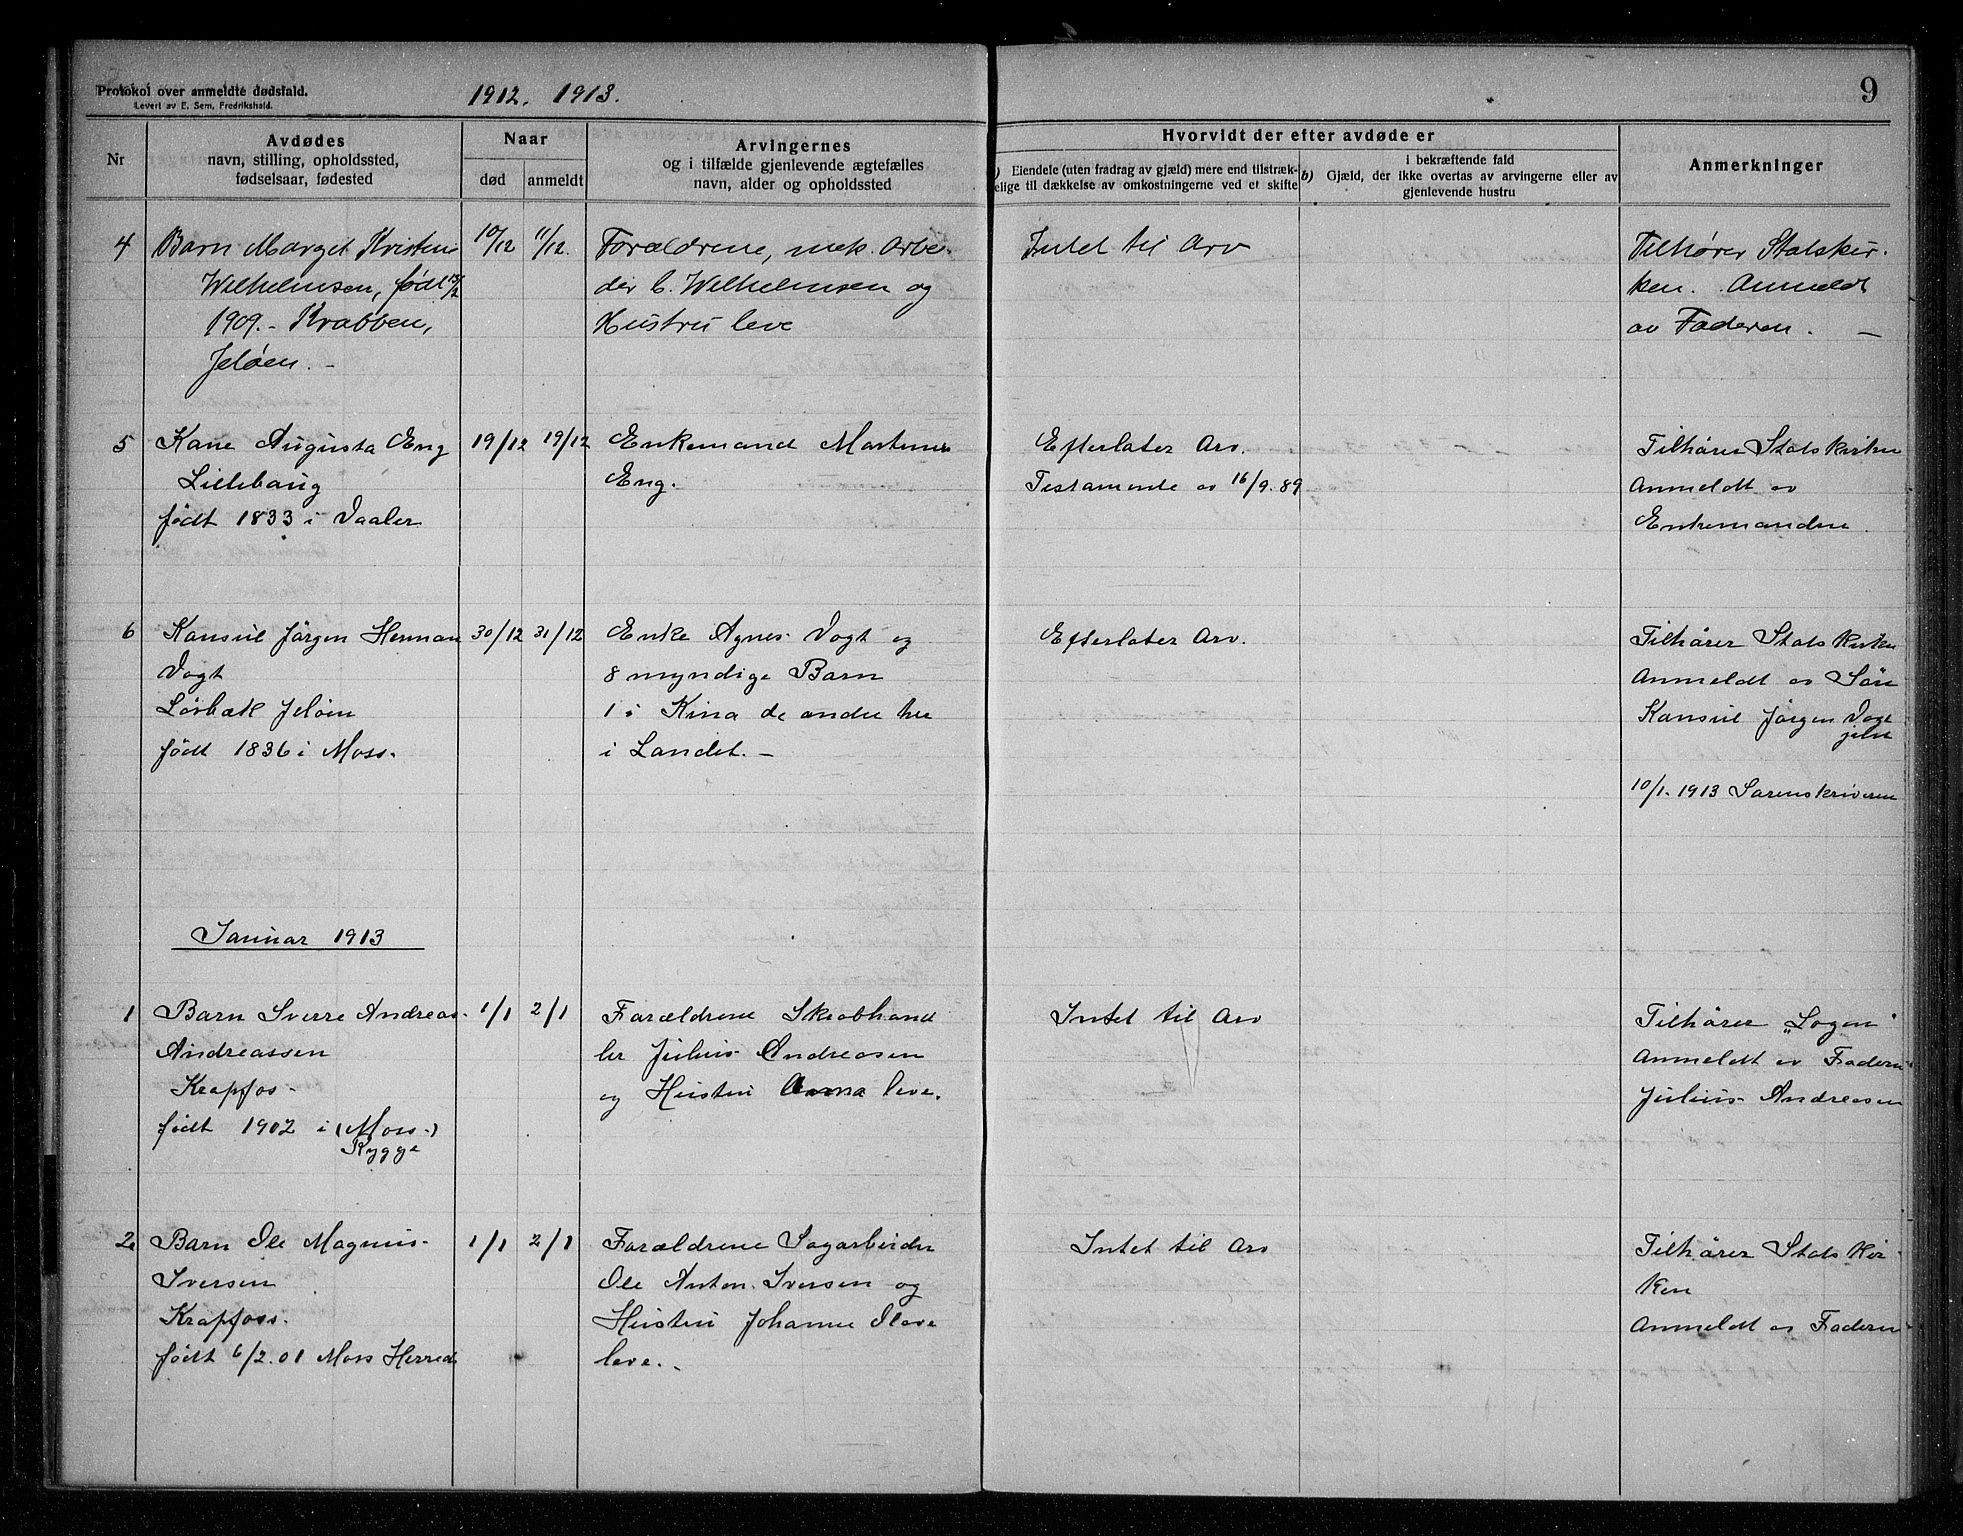 Protokol over anmeldte dødsfald.
Levert av E. Sem, Fredrikshald.
1912. 1913.
9
Nr
Avdødes
navn, stilling, opholdssted,
fødselsaar, fødested
Naar
død
anmeldt
Arvingernes
og i tilfælde gjenlevende ægtefælles
navn, alder og opholdssted
Hvorvidt der efter avdøde er
Eiendele (uten fradrag av gjæld) mere end tilstræk-
elige til dækkelse av omkostningerne ved et skifte
i bekræftende fald
b) Gjæld, der ikke overtas av arvingerne eller av
gjenlevende hustru
Anmerkninger
4
Barn Marget Kristen
Wilhelmsen, født
1909. - Krabben,
Jeløen. -
10/12
11/12.
Forældrene, mek. Arbe-
der C. Wilhelmsen og
Hustru leve
Intet til Arv
Tilhører Statskir-
ken. Anmeldt
av Faderen. -
5
Kane Augusta Eng
Lillebaug
født 1833 i Vaaler
19/12
19/12
Enkemand Martinus
Eng.
Efterlater Arv.
Testamente av 16/9.89
Tilhører Statskirken
Anmeldt av
Enkemanden
6
Konsul Jørgen Herman
Vogt
Lørbæk Jeløen
født 1836 i Moss.
30/12
31/12
Enke Agnes Vogt og
8 myndige Barn
1 i Kina de andre her
i Landet. -
Efterlater Arv.
Tilhører Statskirken
Anmeldt av Søn
Konsul Jørgen Vogt
10/1. 1913 Sorenskriveren
Januar 1913
1
Barn Sverre Andreas
Andreassen
Krapfos -
født 1902 i (Moss)
Rygge
1/1
2/1
Forældrene Skrabhand
ler Julius Andreasen
og Hustru Anna leve.
Intet til Arv
Tilhører "Logen"
Anmeldt av Faderen
Julius Andreasen
2
Barn Ole Magnus
Iversen
Krapfoss.
født 6/2.01 Moss Herred
1/1
2/1
Forældrene Sagarbeider
Ole Anton Iversen og
Hustru Johanne Olava
leve. -
Intet til Arv
Tilhører Stats Kir-
ken
Anmeldt av Faderen